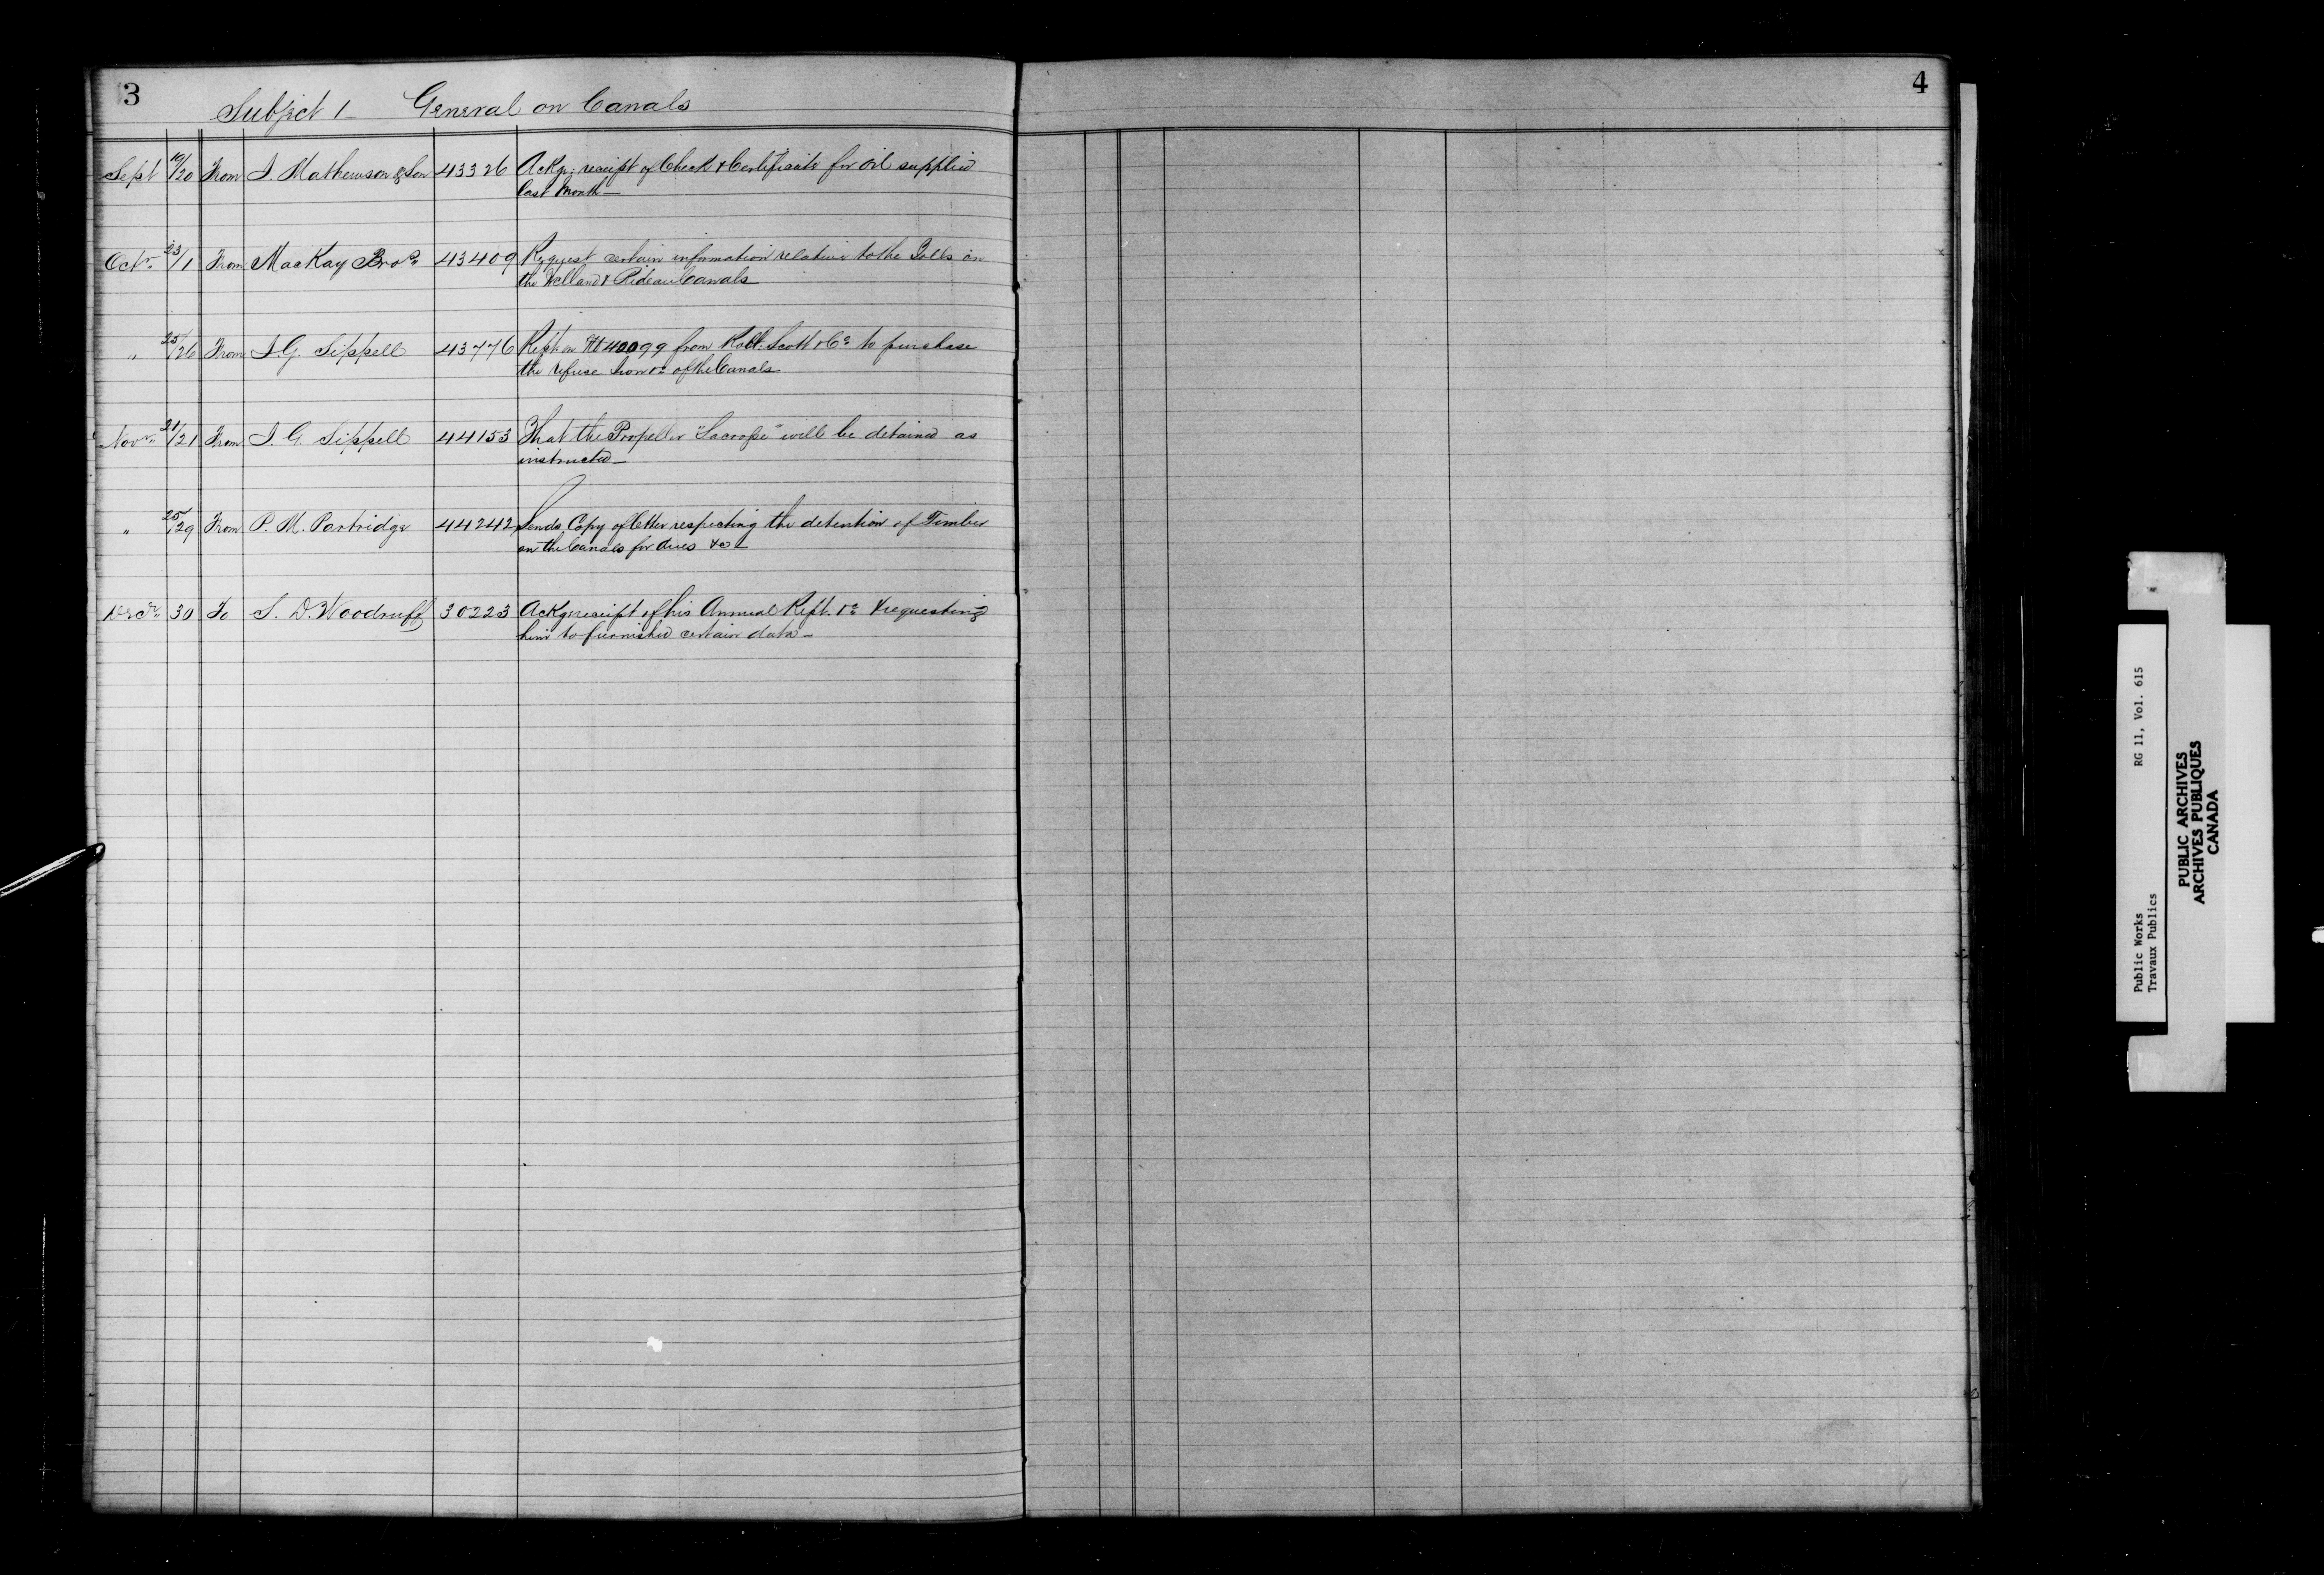 3
Subject 1 General on Canals
Sept 19/20 From J. Mathewson & Son 43326 Ackg: receipt of Check & Certificate for Oil supplied
last Month—
Octr. 23/1 From MacKay Bros. 43409 Request certain information relative to the Tolls on
the Welland & Rideau Canals
" 25/26 From J. G. Sippell 43776 Rept on 40099 from Robt. Scott & Co to purchase
the refuse Iron &c of the Canals
Novr. 21/21 From J. G. Sippell 44153 That the Propeller "Lacrosse" will be detained as
instructed—
" 25/29 From P. M. Partridge 44242 Sends Copy of letter respecting the detention of Timber
on the Canals for dues &c—
Decr. 30 To S. D. Woodruff 30223 Ackg receipt of his Annual Rept. &c & requesting
him to furnished certain data—
4
Public Works RG 11, Vol. 615
Travaux Publics
PUBLIC ARCHIVES
ARCHIVES PUBLIQUES
CANADA